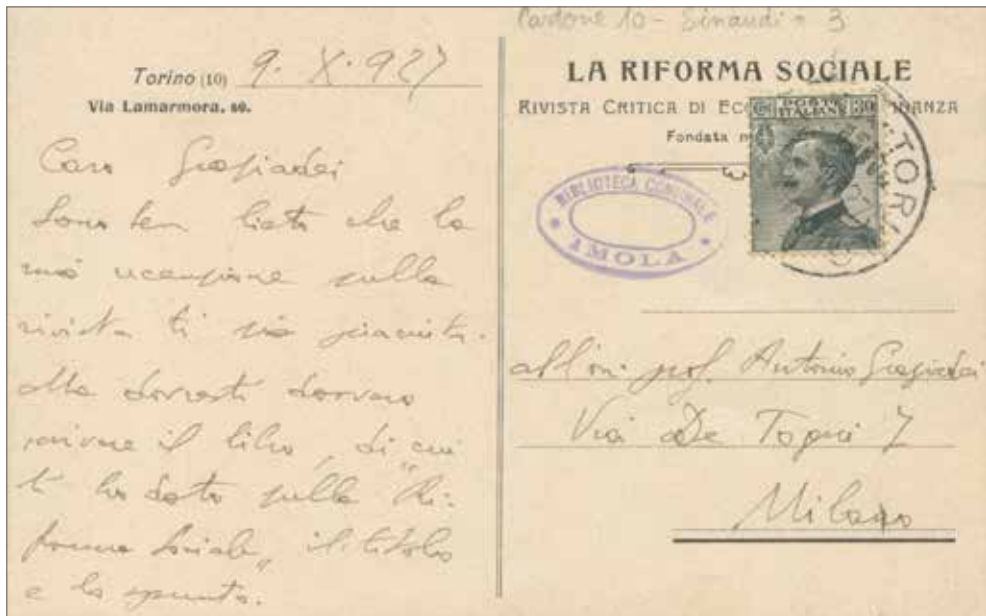 Cartone 10 - Einaudi = 3
Torino (10) 9. X. 927
Via Lamarmora, 60.
Caro Graziadei
Sono ben lieto che la
mia recensione sulla
rivista ti sia piaciuta.
Ma dovresti davvero
scrivere il libro, di cui
ti ho dato sulla "Ri-
forma Sociale" il titolo
e lo spunto.
LA RIFORMA SOCIALE
RIVISTA CRITICA DI
Fondata
POSTE
ITALIANE
30
TORI
BIBLIOTECA COMUNALE
IMOLA
all'on. prof. Antonio Graziadei
Via De Togni 7
Milano